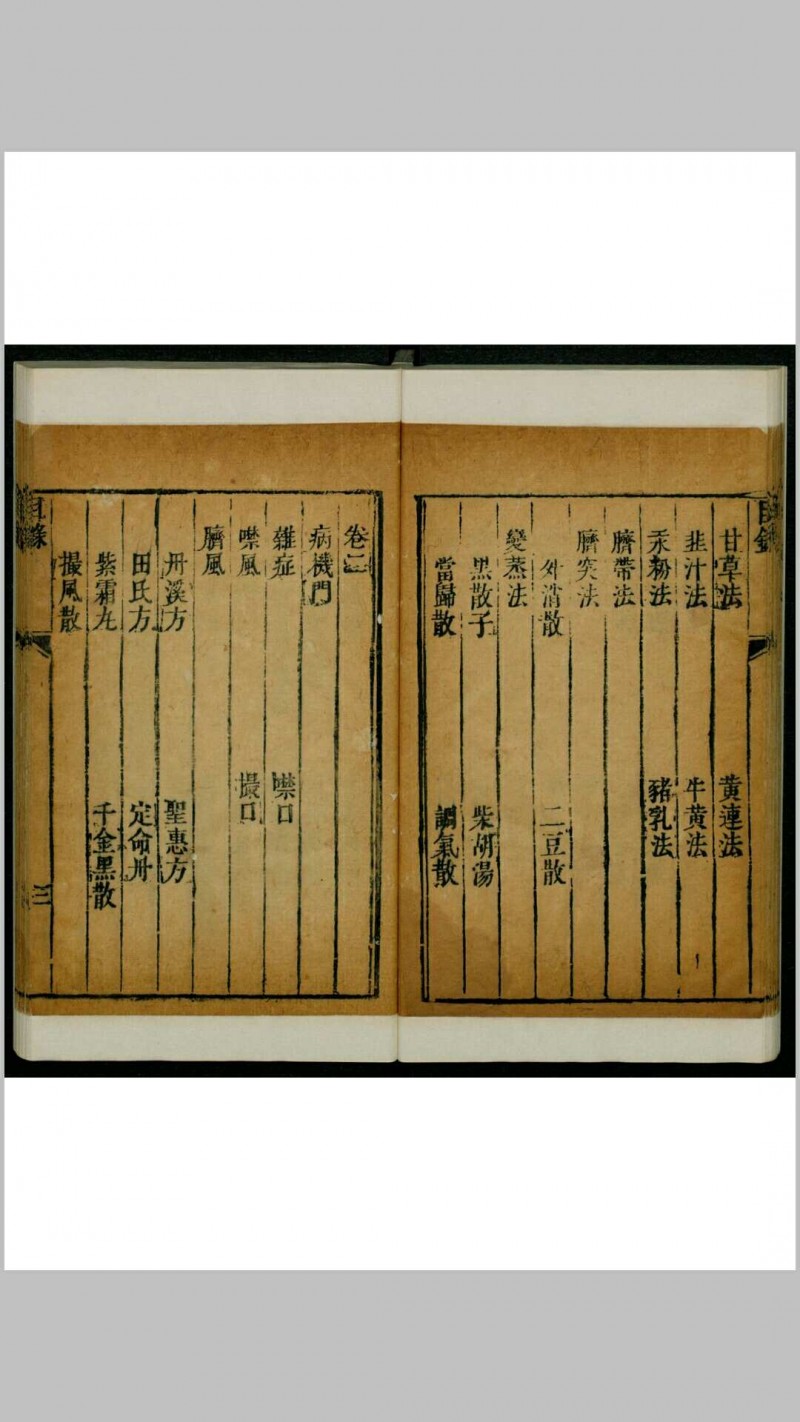 目錄
甘草法　黃連法
韭汁法　牛黃法
汞粉法　豬乳法
臍帶法
臍突法
外消散　二豆散
變蒸法
黑散子　柴胡湯
當歸散　調氣散
卷二
病機門
雜症　噤口
噤風　撮口
臍風
丹溪方　聖惠方
田氏方　定命丹
紫霜丸　千金黑散
撮風散
目錄
三